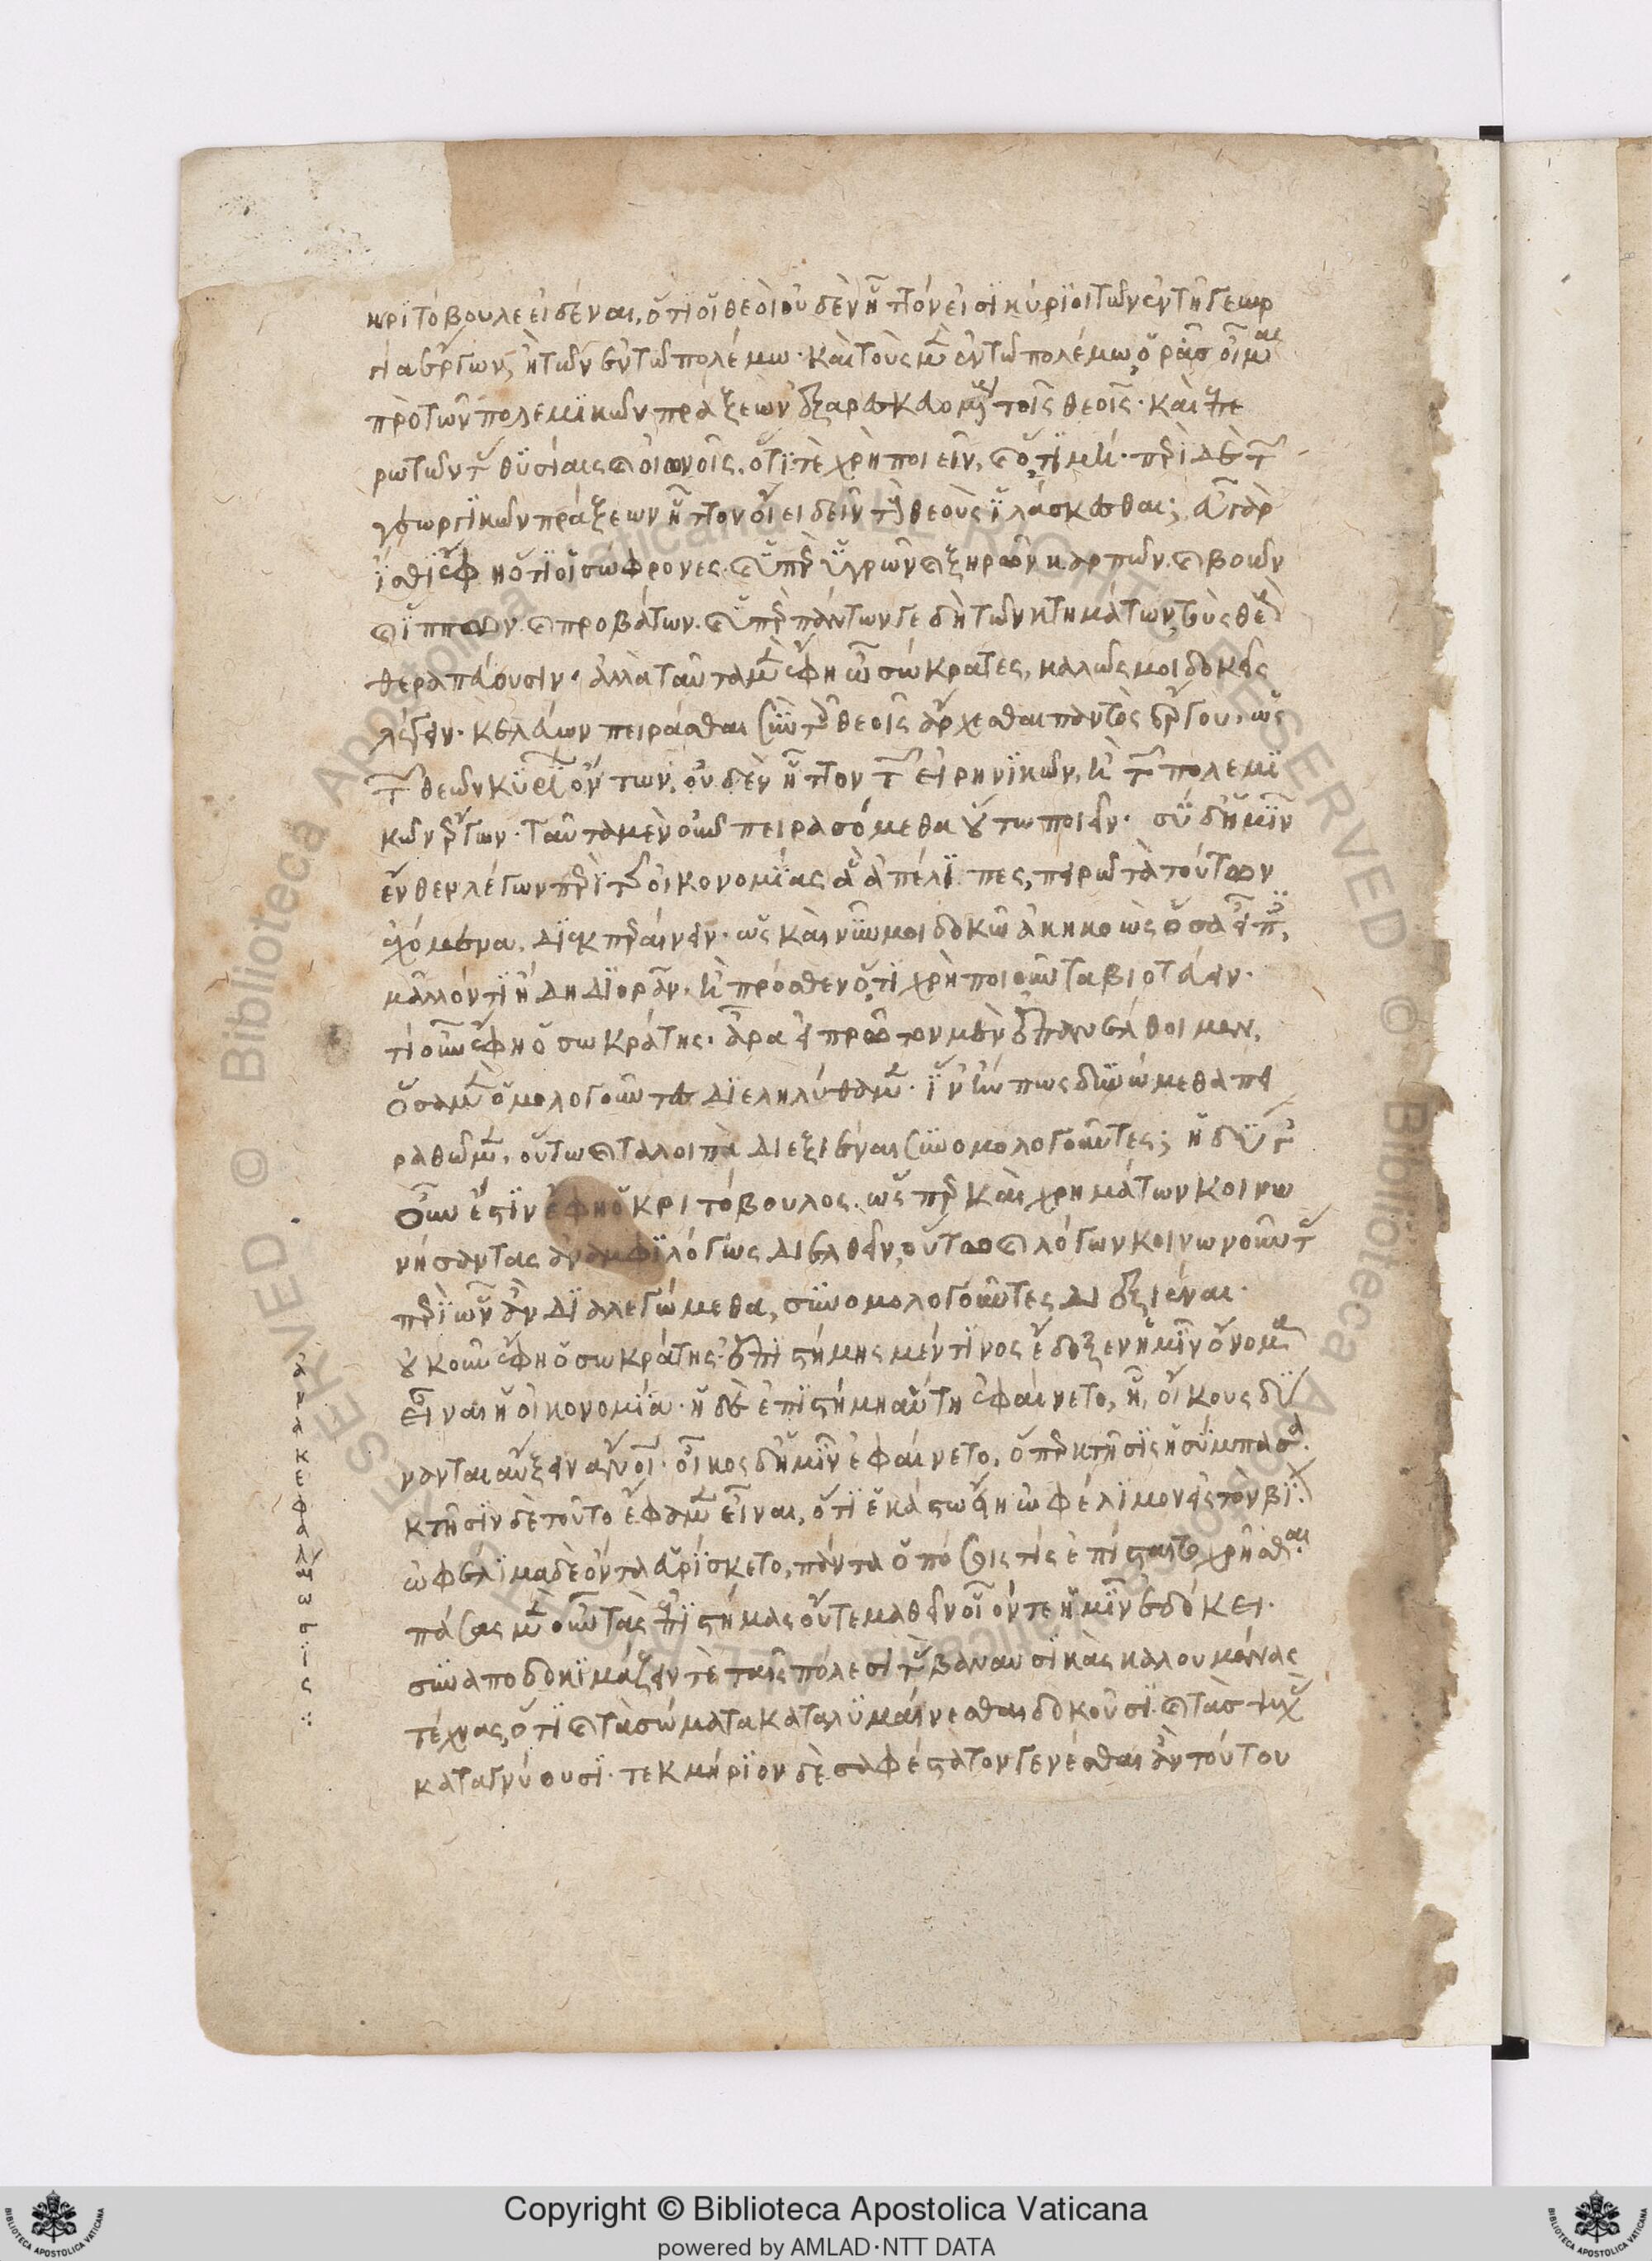 κριτόβουλε εἰδέναι, ὅτι οἱ θεοὶ οὐδὲν ἧττόν εἰσι κύριοι τῶν ἐν τῇ γεωρ
γία ἔργων, ἢ τῶν ἐν τῶ πολέμω· καὶ τοὺς μὲν ἐν τῶ πολέμω, ὁρᾶς οἶμαι
πρὸ τῶν πολεμικῶν πράξεων ἐξαρεσκευομένους τοῖς θεοῖς· καὶ ἐπε
ρωτῶντας θυσίαις καὶ οἰωνοῖς, ὅτι τὲ χρὴ ποιεῖν, καὶ ὅ,τι μή· περὶ δὲ τῶν
γεωργικῶν πράξεων ἧττον οἴει δεῖν τοὺς θεοὺς ἱλάσκεσθαι; εὖ γὰρ
ἴσθι ἔφη ὅτι οἱ σώφρονες καὶ ὑπὲρ ὑγρῶν καὶ ξηρῶν καρπῶν καὶ βοῶν
καὶ ἵππων καὶ προβάτων καὶ ὑπὲρ πάντων γε δὴ τῶν κτημάτων τοὺς θεοὺς
θεραπεύουσιν· ἀλλὰ ταῦτα μὲν ἔφη ὦ σώκρατες, καλῶς μοι δοκεῖς
λέγειν· κελεύων πειρᾶσθαι σὺν τοῖς θεοῖς ἄρχεσθαι παντὸς ἔργου, ὡς
τῶν θεῶν κυρίων ὄντων, οὐδὲν ἧττον τῶν εἰρηνικῶν, ἢ τῶν πολεμι
κῶν ἔργων· ταῦτα μὲν οὖν πειρασόμεθα οὕτω ποιεῖν· σὺ δ' ἡμῖν
ἔνθεν λέγων περὶ τῆς οἰκονομίας ἀπέλιπες, πειρῶ τὰ τούτων
ἐχόμενα, διεκπεραίνειν· ὡς καὶ νῦν μοι δοκῶ ἀκηκοὼς ὅσα εἶπες,
μᾶλλόν τι ἤδη διορᾶν, ἢ πρόσθεν ὅ,τι χρὴ ποιοῦντα βιοτεύειν·
τί οὖν ἔφη ὁ σωκράτης· ἆρα εἰ πρῶτον μὲν ἐπανέλθοιμεν,
ὅσα μὲν ὁμολογοῦντες διεληλύθαμεν· ἵν' ἤν πως δυνώμεθα πει
ραθῶμεν, οὕτω καὶ τὰ λοιπὰ διεξιέναι συνομολογοῦντες; ἡδὺ γ
οὖν ἐστὶν ἔφη ὁ κριτόβουλος· ὥσπερ καὶ χρημάτων κοινω
νήσαντας ἀναμφιλόγως διελθεῖν, οὕτω καὶ λόγων κοινωνοῦντας
περὶ ὧν ἂν διαλεγώμεθα, συνομολογοῦντες διεξιέναι·
οὐκοῦν ἔφη ὁ σωκράτης· ἐπιστήμης μέν τινος ἔδοξεν ἡμῖν ὄνομα
εἶναι ἡ οἰκονομία· ἡ δὲ ἐπιστήμη αὕτη ἐφαίνετο, ἧ, οἴκους δύ
νανται αὔξειν ἄνθρωποι· οἶκος δ' ἡμῖν ἐφαίνετο, ὅπερ κτῆσις ἡ σύμπασα·
κτῆσιν δὲ τοῦτο ἔφαμεν εἶναι, ὅτι ἑκάστω εἴη ὠφέλιμον εἰς τὸν βίον·
ὠφέλιμα δὲ ὄντα εὑρίσκετο, πάντα ὁπόσοις τίς ἐπίσταιτο χρῆσθαι·
πάσας μὲν οὖν τὰς ἐπιστήμας οὔτε μαθεῖν οἷόν τε ἡμῖν ἐδόκει·
συναποδοκιμάζειν τὲ ταῖς πόλεσι τὰς βαναυσικὰς καλουμένας
τέχνας, ὅτι καὶ τὰ σώματα καταλυμαίνεσθαι δοκοῦσι καὶ τὰς ψυχὰς
καταγνύουσι· τεκμήριον δὲ σαφέστατον γενέσθαι ἂν τούτου
ἀνακεφαλαίωσις
Copyright © Biblioteca Apostolica Vaticana
powered by AMLAD·NTT DATA